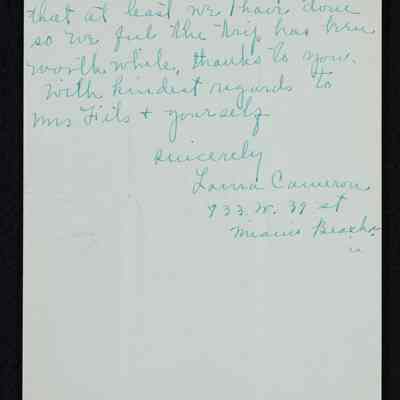 that at least we have done
so we feel the trip has been
worth while, thanks to you.
With kindest regards to
Mrs Fils + yourself
Sincerely
Lorna Cameron
933 W. 39 st
Miami Beach